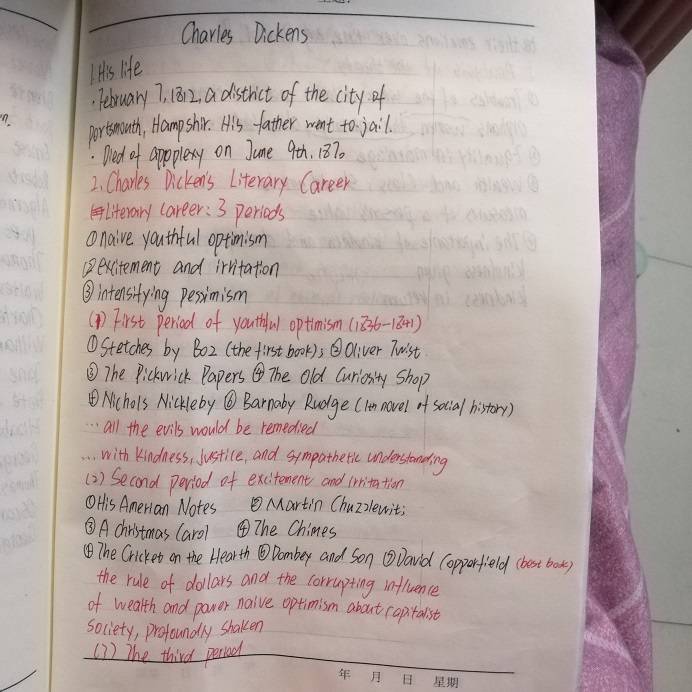 Charles Dickens
1. His life
· February 7, 1812, a district of the city of
portsmouth, Hampshir. His father went to jail.
· Died of apoplexy on June 9th, 1870
2. Charles Dicken's Literary Career
Literary career: 3 periods
① naive youthful optimism
② excitement and irritation
③ intensifying pessimism
(1) First period of youthful optimism (1836-1841)
① Stetches by Boz (the first book); ② Oliver Twist
③ The Pickwick Papers ④ The Old Curiosity Shop
④ Nichols Nickleby ⑥ Barnaby Rudge (1th novel of social history)
... all the evils would be remedied
... with kindness, justice, and sympathetic understanding
(2) Second period of excitement and irritation
① His Amerian Notes ② Martin Chuzzlewit;
③ A christmas Carol ④ The Chimes
④ The Cricket on the Hearth ⑥ Dombey and Son ⑦ David Copperfield (best book)
the rule of dollars and the corrupting influence
of wealth and power naive optimism about capitalist
society, profoundly shaken
(3) The third period
年 月 日 星期